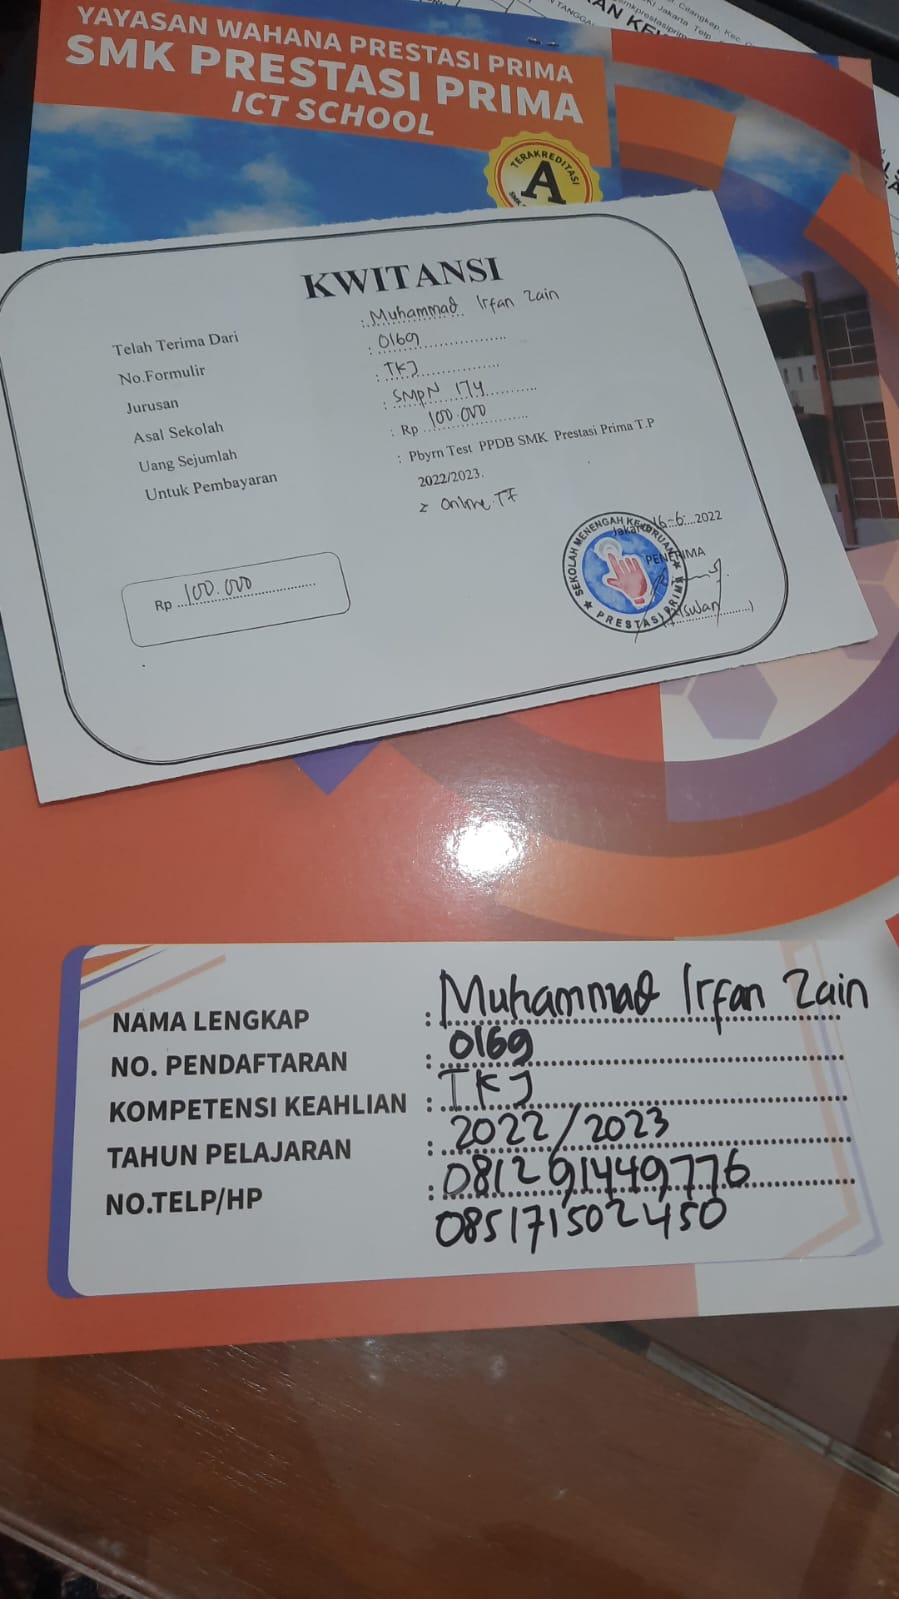 YAYASAN WAHANA PRESTASI PRIMA
SMK PRESTASI PRIMA
ICT SCHOOL
TERAKREDITASI
A
SMK
KWITANSI
Telah Terima Dari : Muhammad Irfan Zain
No.Formulir : 0169
Jurusan : TKJ
Asal Sekolah : SMPN 174
Uang Sejumlah : Rp 100.000
Untuk Pembayaran : Pbyrn Test PPDB SMK Prestasi Prima T.P
2022/2023.
Online TF
Jakarta 16-6-2022
PENERIMA
SEKOLAH MENENGAH KEJURUAN
PRESTASI PRIMA
Rp 100.000
NAMA LENGKAP : Muhammad Irfan Zain
NO. PENDAFTARAN : 0169
KOMPETENSI KEAHLIAN : TKJ
TAHUN PELAJARAN : 2022/2023
NO.TELP/HP : 081291449776
085171502450